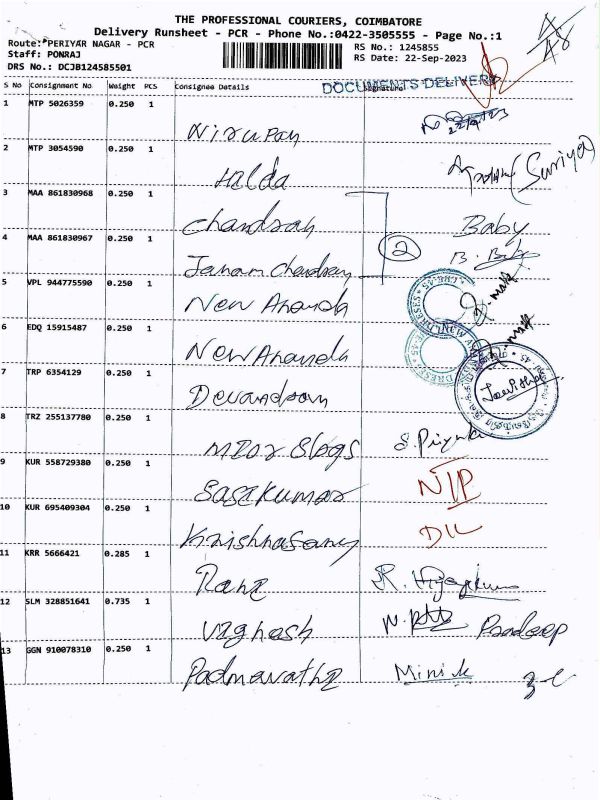 THE PROFESSIONAL COURIERS, COIMBATORE
Delivery Runsheet - PCR - Phone No.:0422-3505555 - Page No.:1
Route: PERIYAR NAGAR - PCR
RS No.: 1245855
Staff: PONRAJ
RS Date: 22-Sep-2023
DRS No.: DCJB124585501
DOCUMENTS DELIVERY
S No Consignment No Weight PCS Consignee Details Signature
1 MTP 5026359 0.250 1
Nirupan
2 MTP 3054590 0.250 1
Hilda (Suriya)
3 MAA 861830968 0.250 1
Chandran Baby
4 MAA 861830967 0.250 1 2
Janam Chandran B. Baby
5 VPL 944775590 0.250 1
New Ananda
6 EDQ 15915487 0.250 1
New Ananda
7 TRP 6354129 0.250 1
Devandran
8 TRZ 255137780 0.250 1
S. Priyanka
9 KUR 558729380 0.250 1
Sasikumar NIP
10 KUR 695409304 0.250 1
Krishnasamy DIL
11 KRR 5666421 0.285 1
Rani R.
12 SLM 328851641 0.735 1
Vighesh Pradeep
13 GGN 910078310 0.250 1
Padmavathi